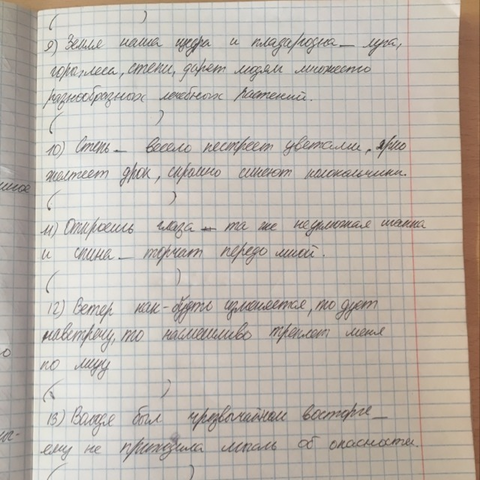 ( )
9) Земля наша щедра и плодородна_ луга,
горы, леса, степи, дарят людям множество
разнообразных лечебных растений.
( )
10) Степь_ весело пестреет цветами, ярко
желтеет дрок, скромно синеют колокольчики.
( )
11) Откроешь глаза_ та же неуклюжая шапка
и спина_ торчат передо мной.
( )
12) Ветер как-будто изменяется, то дует
навстречу, то насмешливо треплет меня
по лицу
( )
13) Володя был чрезвычайном восторге_
ему не приходила мысль об опасности.
( )